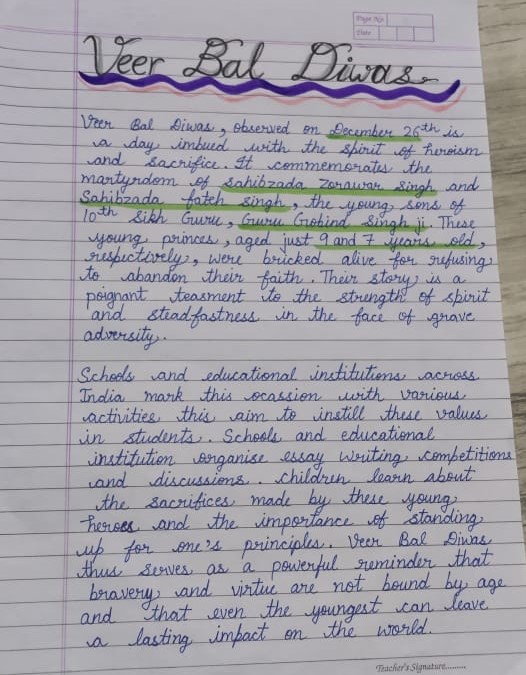 Page No.
Date
Veer Bal Diwas
Veer Bal Diwas, observed on December 26th is
a day imbued with the spirit of heroism
and sacrifice. It commemorates the
martyrdom of Sahibzada Zorawar Singh and
Sahibzada fateh singh, the young sons of
10th Sikh Guru, Guru Gobind Singh ji. These
young princes, aged just 9 and 7 years old,
respectively, were bricked alive for refusing
to abandon their faith. Their story is a
poignant teasment to the strength of spirit
and steadfastness in the face of grave
adversity.
Schools and educational institutions across
India mark this ocassion with various
activities this aim to instill these values
in students. Schools and educational
institution organise essay writing competitions
and discussions. children learn about
the sacrifices made by these young
heroes and the importance of standing
up for one's principles. Veer Bal Diwas
thus serves as a powerful reminder that
bravery and virtue are not bound by age
and that even the youngest can leave
a lasting impact on the world.
Teacher's Signature.........